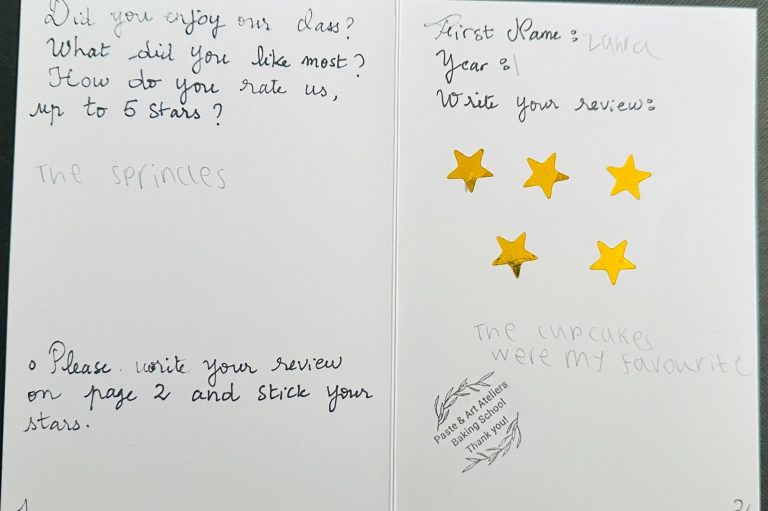 Did you enjoy our class?
What did you like most?
How do you rate us,
up to 5 stars?
The sprincles
o Please write your review
on page 2 and stick your
stars.
1
First Name: zawa
Year: 1
Write your review:
The cupcakes
were my favourite
Paste & Art Ateliers
Baking School
Thank you!
2